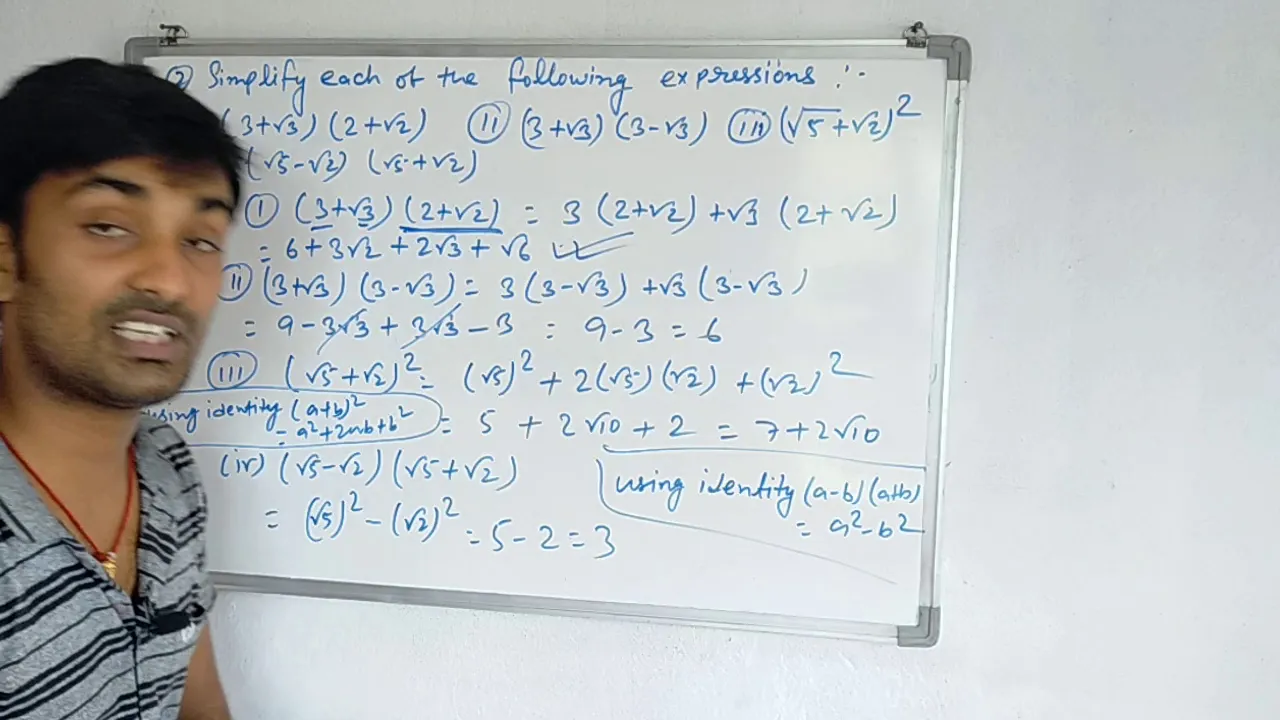 ② Simplify each of the following expressions :-
(3+√3) (2+√2) (ii) (3+√3) (3-√3) (iii) (√5+√2)²
(√5-√2) (√5+√2)
(i) (3+√3) (2+√2) = 3 (2+√2) +√3 (2+√2)
= 6+3√2 +2√3+ √6
(ii) (3+√3) (3-√3) = 3(3-√3) +√3 (3-√3)
= 9-3√3+3√3-3 = 9-3 = 6
(iii) (√5+√2)² = (√5)² + 2(√5)(√2) +(√2)²
using identity (a+b)²
= a²+2ab+b²
= 5 + 2√10 + 2 = 7+2√10
(iv) (√5-√2) (√5+√2)
using identity (a-b) (a+b)
= a²-b²
= (√5)² - (√2)² = 5-2 = 3